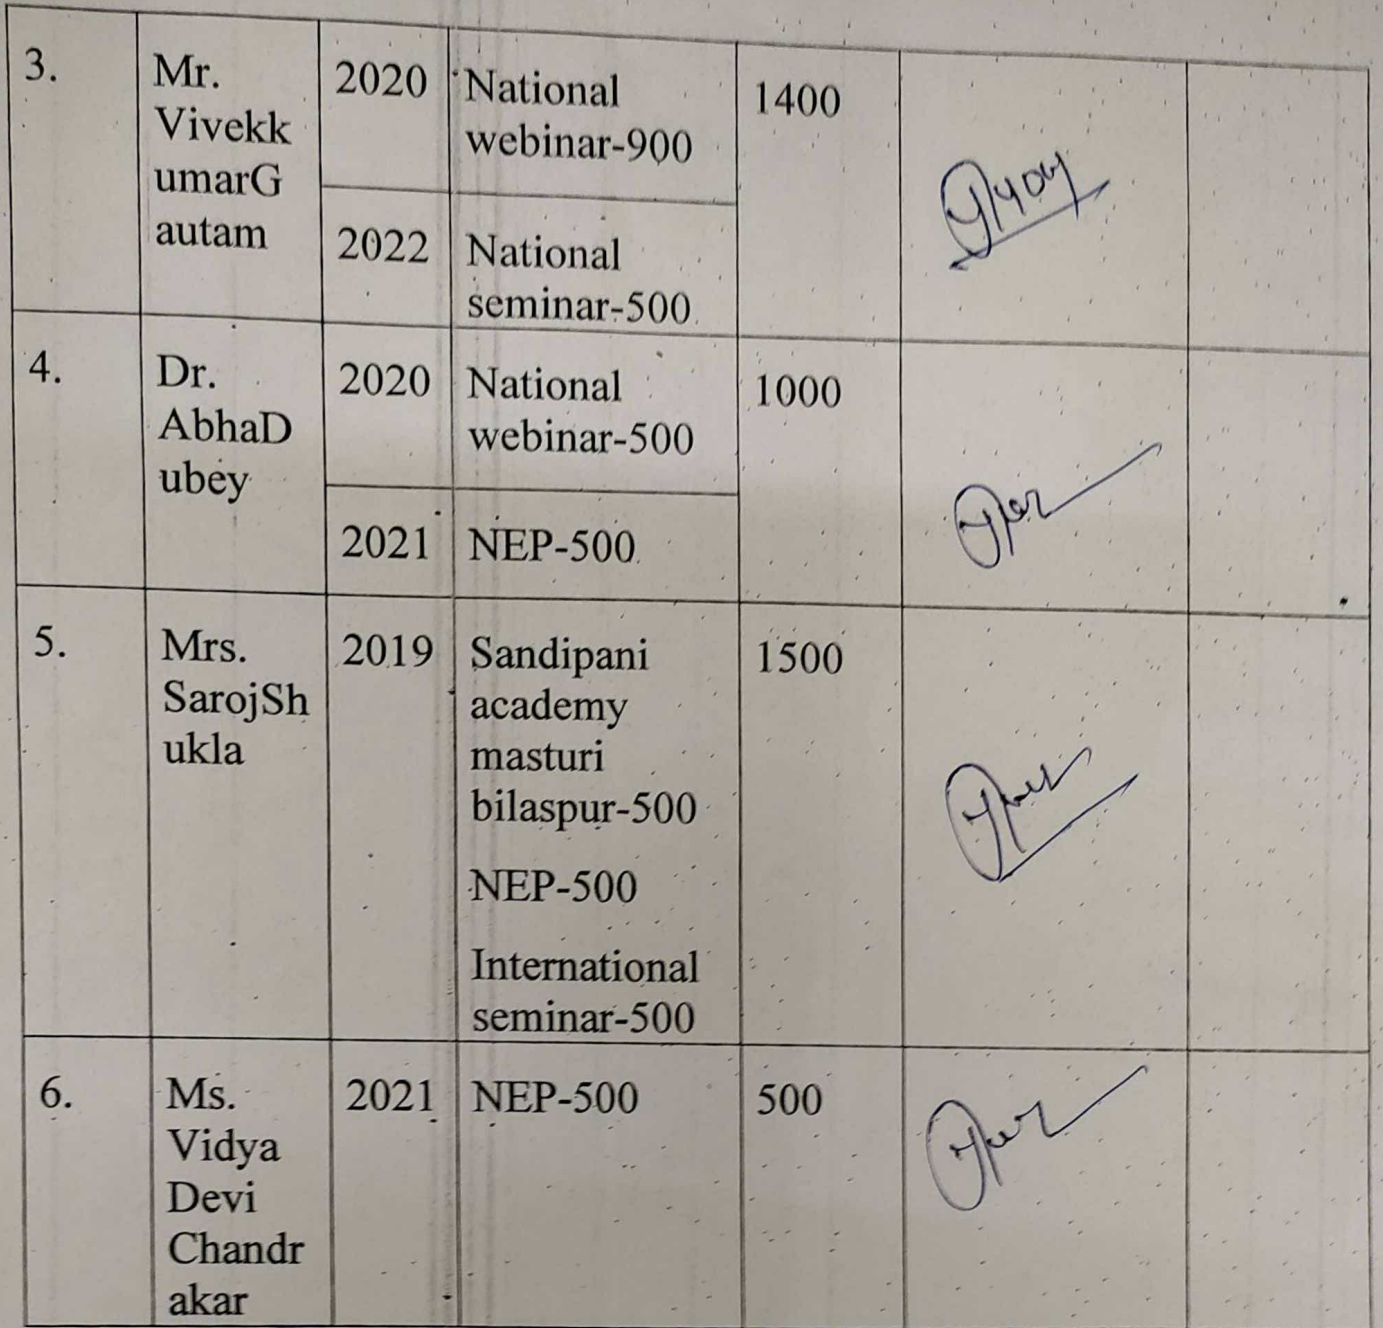 3.
Mr.
Vivekk
umarG
autam
2020
National
webinar-900
1400
2022
National
seminar-500
4.
Dr.
AbhaD
ubey
2020
National
webinar-500
1000
2021
NEP-500
5.
Mrs.
SarojSh
ukla
2019
Sandipani
academy
masturi
bilaspur-500
NEP-500
International
seminar-500
1500
6.
Ms.
Vidya
Devi
Chandr
akar
2021
NEP-500
500